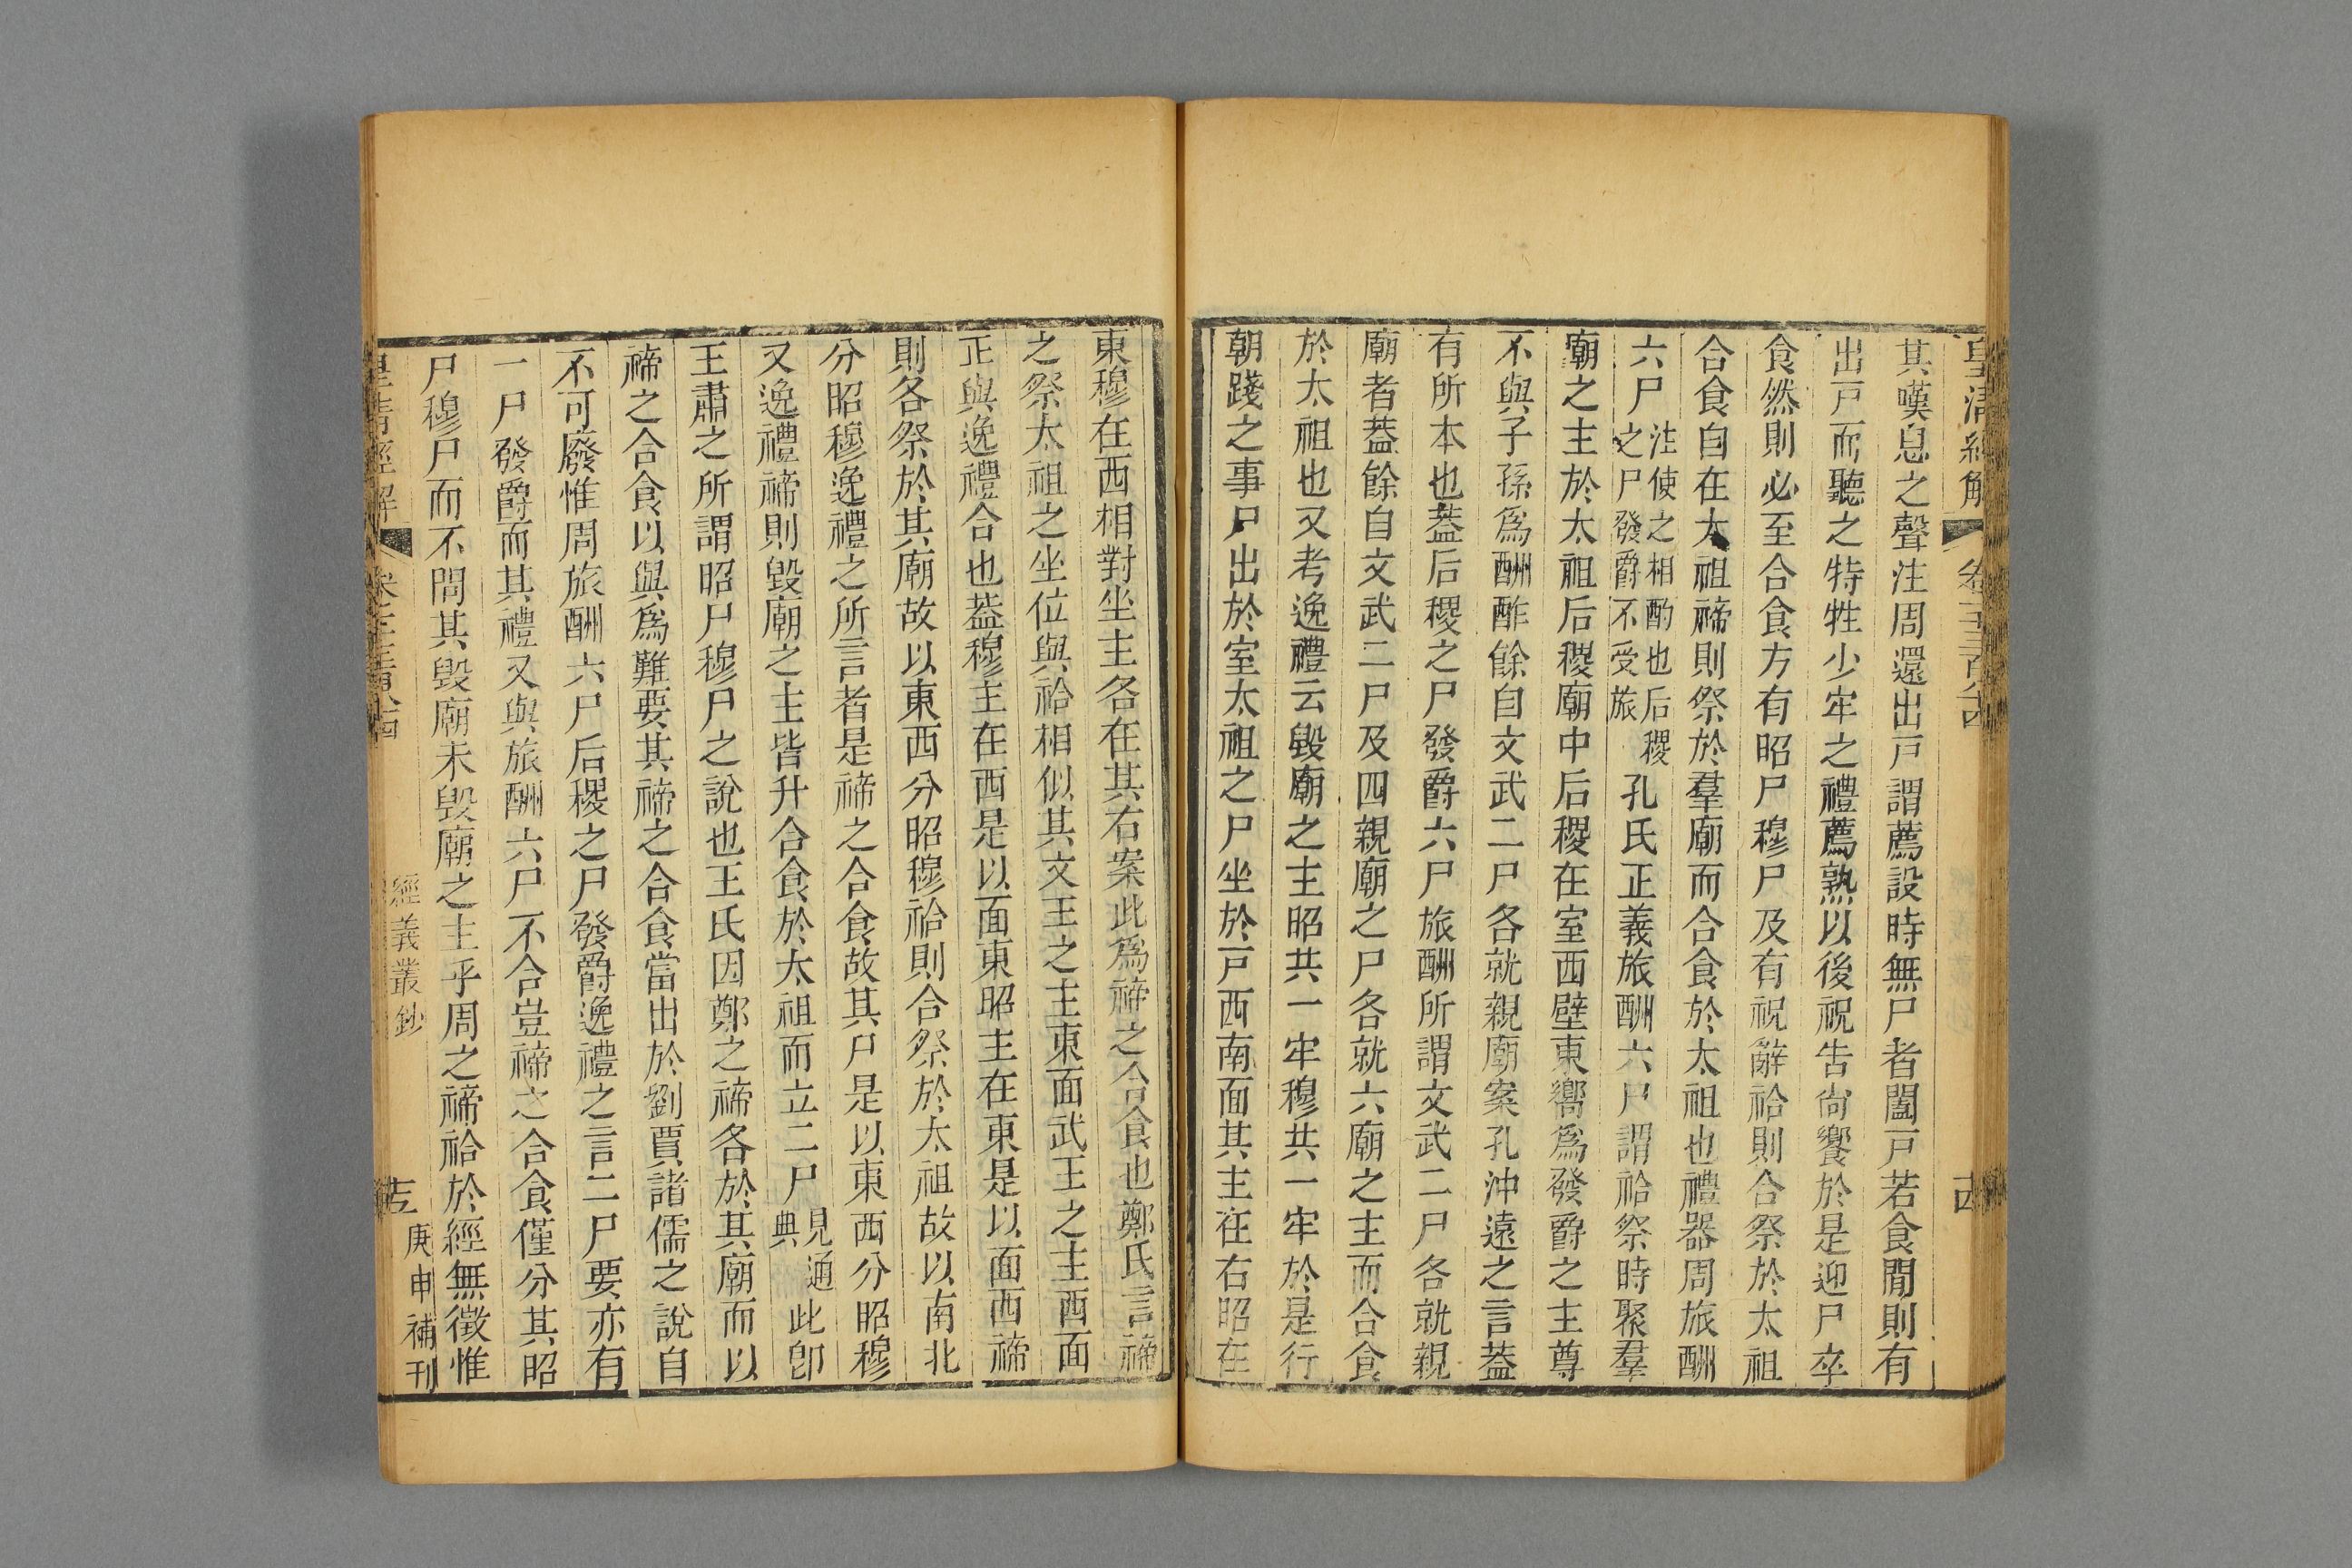 皇清經解
卷一千三百八十四
其嘆息之聲注周還出戸謂薦設時無尸者闔戸若食閒則有
出戸而聽之特牲少牢之禮薦孰以後祝告尙饗於是迎尸卒
食然則必至合食方有昭尸穆尸及有祝辭祫則合祭於太祖
合食自在太祖禘則祭於羣廟而合食於太祖也禮器周旅酬
六尸
注使之相酌也后稷
之尸發爵不受旅
孔氏正義旅酬六尸謂祫祭時聚羣
廟之主於太祖后稷廟中后稷在室西壁東嚮爲發爵之主尊
不與子孫爲酬酢餘自文武二尸各就親廟案孔沖遠之言葢
有所本也葢后稷之尸發爵六尸旅酬所謂文武二尸各就親
廟者葢餘自文武二尸及四親廟之尸各就六廟之主而合食
於太祖也又考逸禮云毀廟之主昭共一牢穆共一牢於是行
朝踐之事尸出於室太祖之尸坐於戸西南面其主在右昭在
東穆在西相對坐主各在其右案此爲禘之合食也鄭氏言禘
之祭太祖之坐位與祫相似其文王之主東面武王之主西面
正與逸禮合也葢穆主在西是以面東昭主在東是以面西禘
則各祭於其廟故以東西分昭穆祫則合祭於太祖故以南北
分昭穆逸禮之所言者是禘之合食故其尸是以東西分昭穆
又逸禮禘則毀廟之主皆升合食於太祖而立二尸
見通
典
此卽
王肅之所謂昭尸穆尸之說也王氏因鄭之禘各於其廟而以
禘之合食以與爲難要其禘之合食當出於劉賈諸儒之說自
不可廢惟周旅酬六尸后稷之尸發爵逸禮之言二尸要亦有
一尸發爵而其禮又與旅酬六尸不合豈禘之合食僅分其昭
尸穆尸而不問其毀廟未毀廟之主乎周之禘祫於經無徵惟
皇清經解
經義叢鈔
庚申補刊